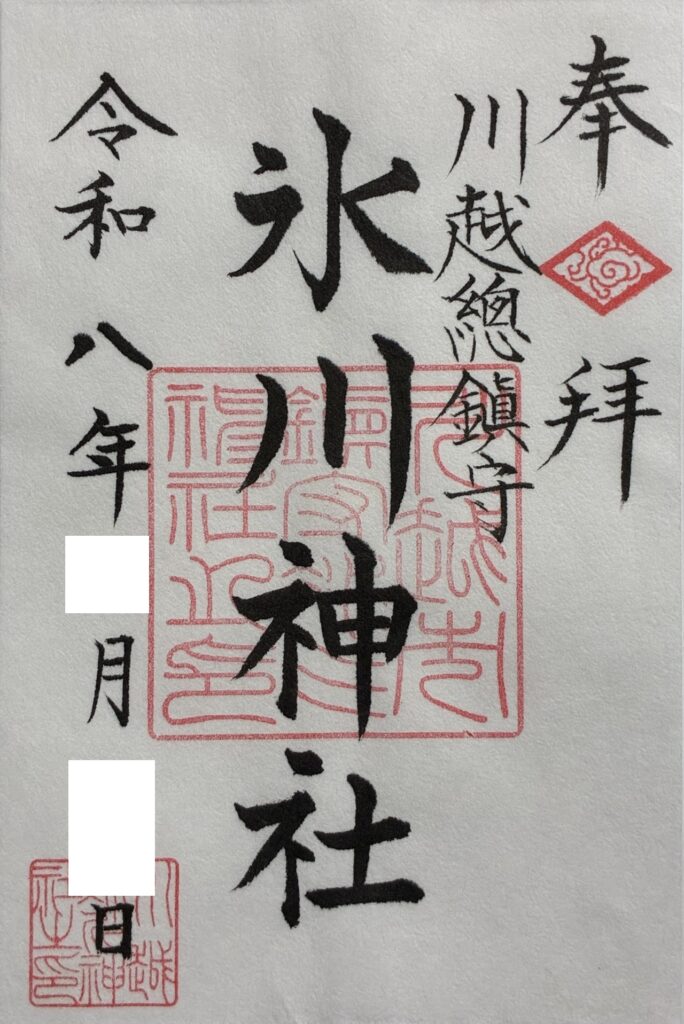 奉拝
川越總鎮守
氷川神社
令和八年 月 日